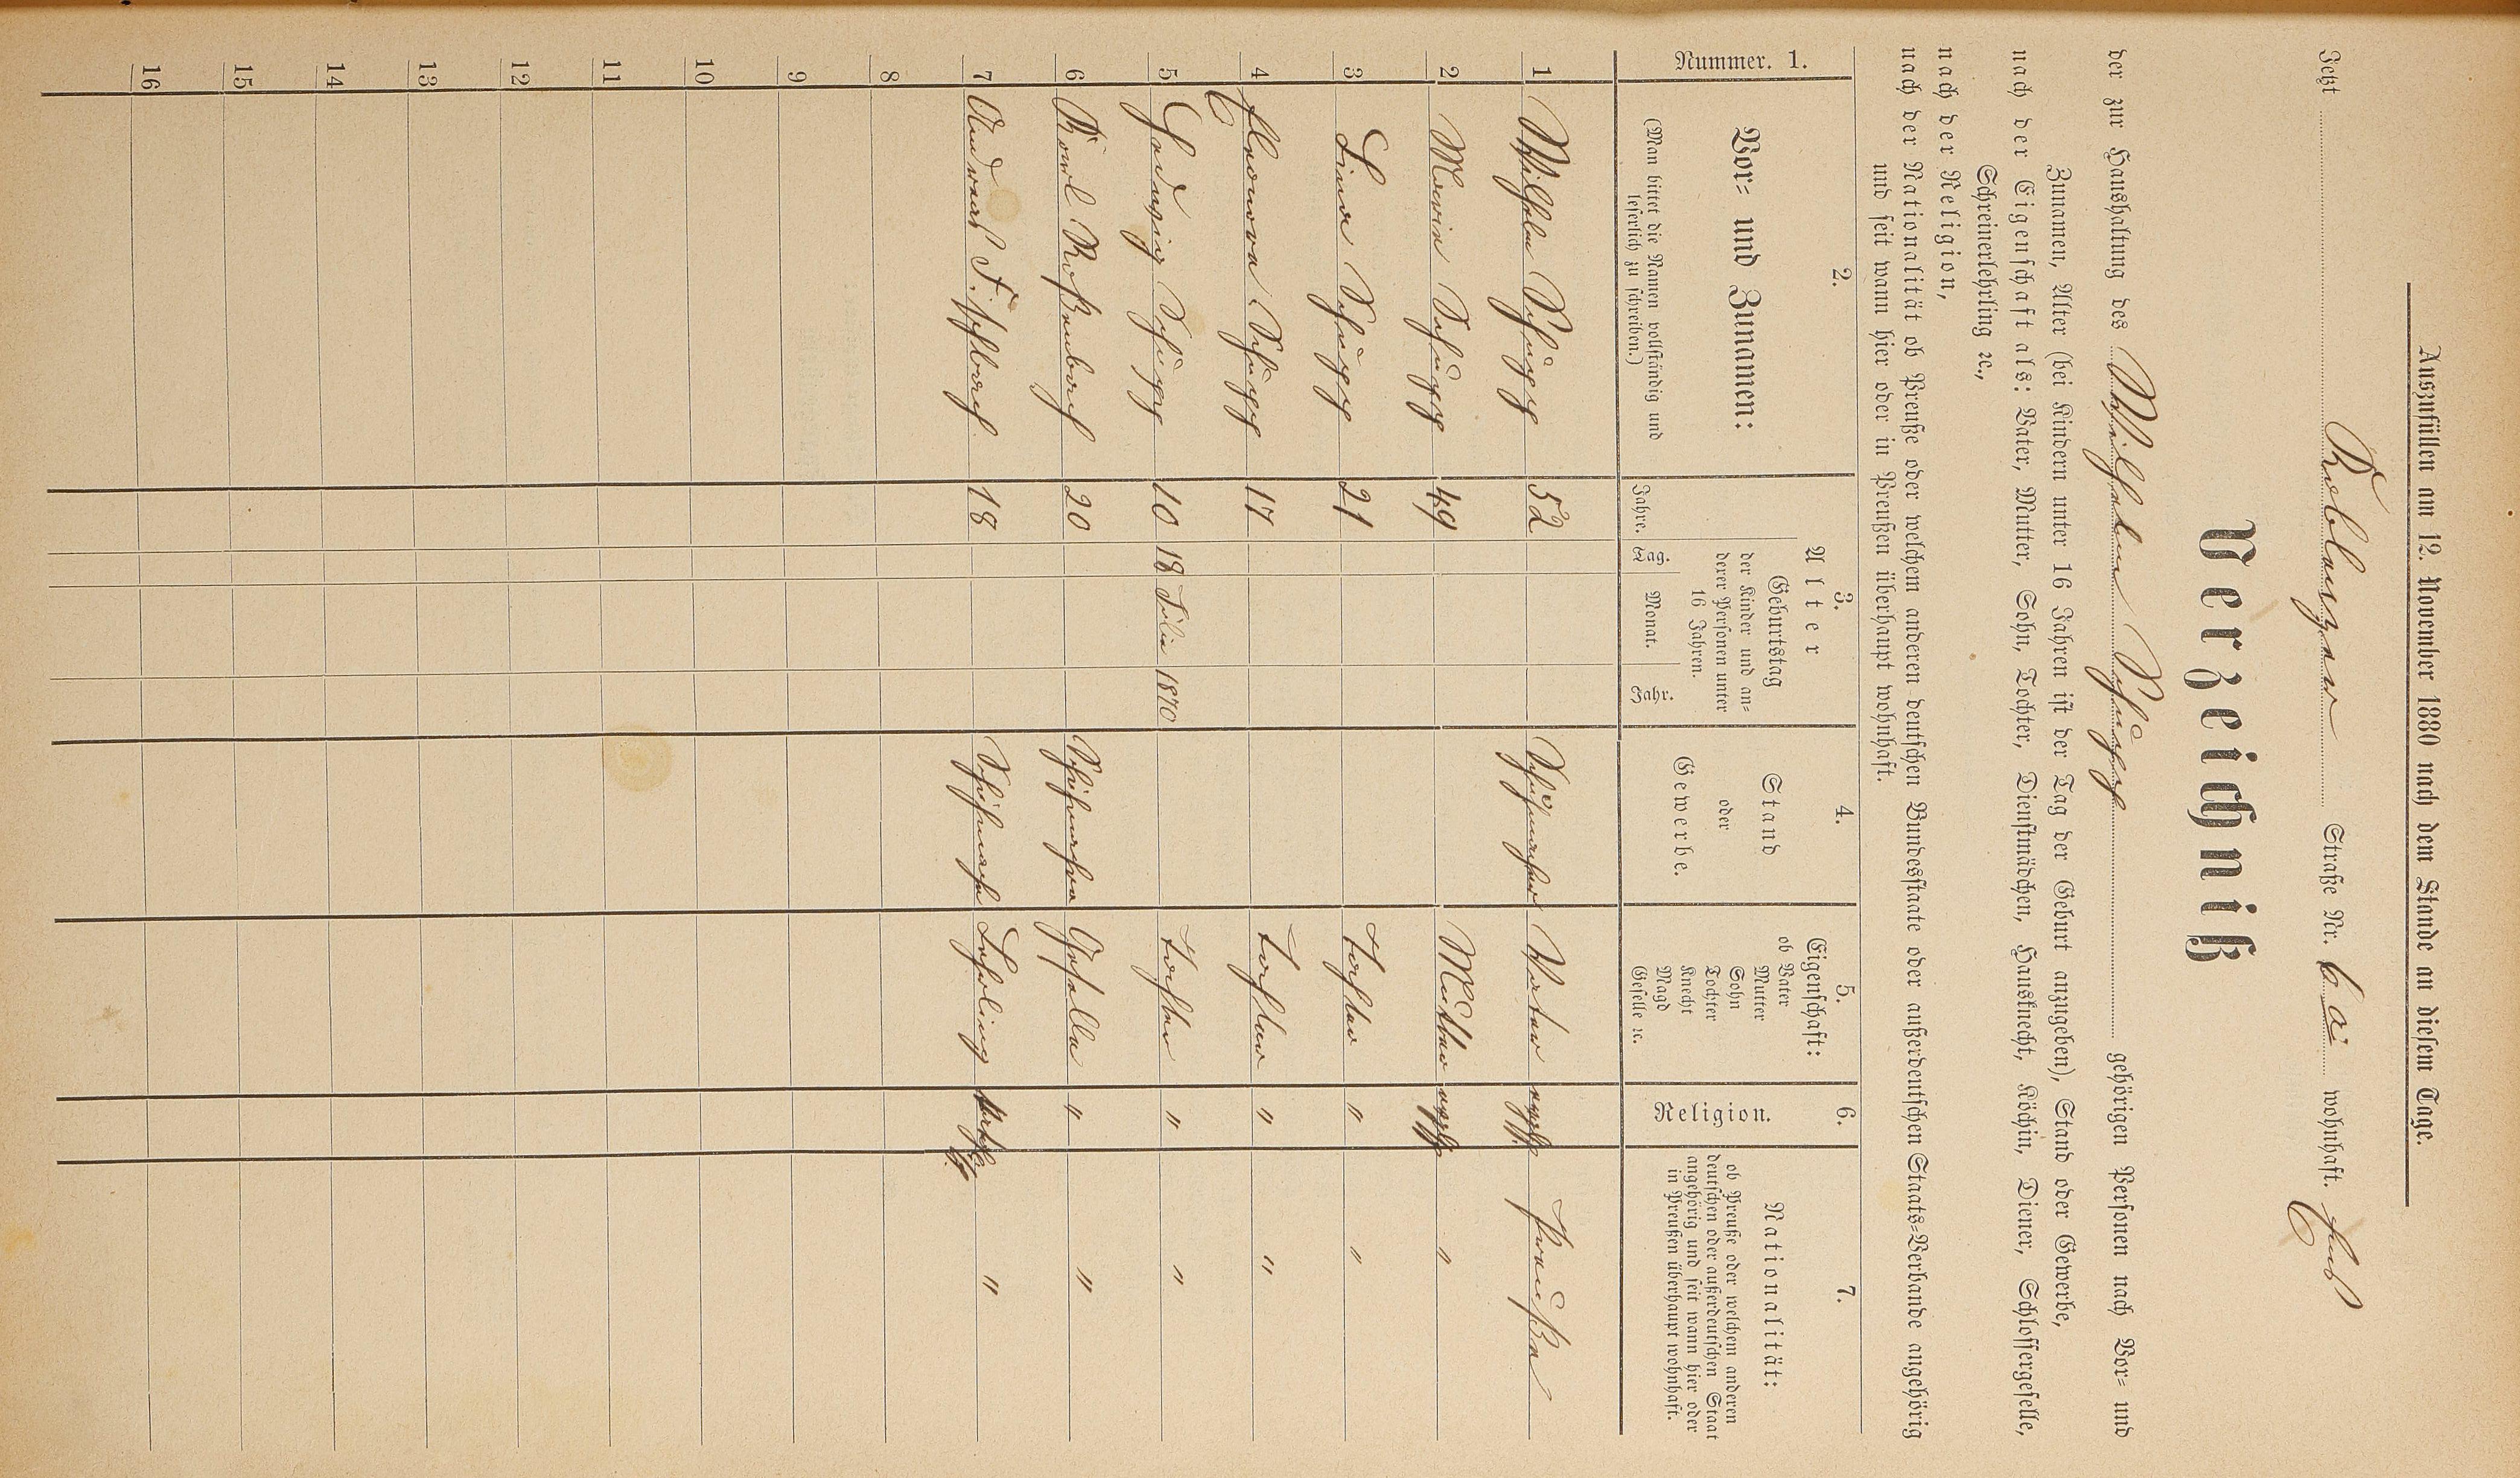 Auszufüllen am 12. November 1880 nach dem Stande an diesem Tage.
Jetzt Koblenzer Straße Nr. 6a wohnhaft.
Verzeichniß
der zur Haushaltung des Wilhelm Schupp gehörigen Personen nach Vor- und
Zunamen, Alter (bei Kindern unter 16 Jahren ist der Tag der Geburt anzugeben), Stand oder Gewerbe,
nach der Eigenschaft als: Vater, Mutter, Sohn, Tochter, Dienstmädchen, Hausknecht, Köchin, Diener, Schlossergeselle,
Schreinerlehrling ꝛc.,
nach der Religion,
nach der Nationalität ob Preuße oder welchem anderen deutschen Bundesstaate oder außerdeutschen Staats-Verbande angehörig
und seit wann hier oder in Preußen überhaupt wohnhaft.
1. Nummer.
2. Vor- und Zunamen:
(Man bittet die Namen vollständig und
leserlich zu schreiben.)
3. Alter
Jahre.
Geburtstag
der Kinder und an-
derer Personen unter
16 Jahren.
Tag. Monat. Jahr.
4. Stand
oder
Gewerbe.
5. Eigenschaft:
ob Vater
Mutter
Sohn
Tochter
Knecht
Magd
Geselle ꝛc.
6. Religion.
7. Nationalität:
ob Preuße oder welchem anderen
deutschen oder außerdeutschen Staat
angehörig und seit wann hier oder
in Preußen überhaupt wohnhaft.
1 Wilhelm Schupp 52 Schuhmacher Vater Preuße
2 Maria Schupp 49 Mutter "
3 Lina Schupp 21 Tochter " "
4 Eleonora Schupp 17 Tochter " "
5 Hedwig Schupp 10 18 Julie 1870 Tochter " "
6 Karl Roßenbach 20 Schuhmacher Geselle " "
7 Andreas Fischbach 18 Schuhmacher Lehrling "
8
9
10
11
12
13
14
15
16